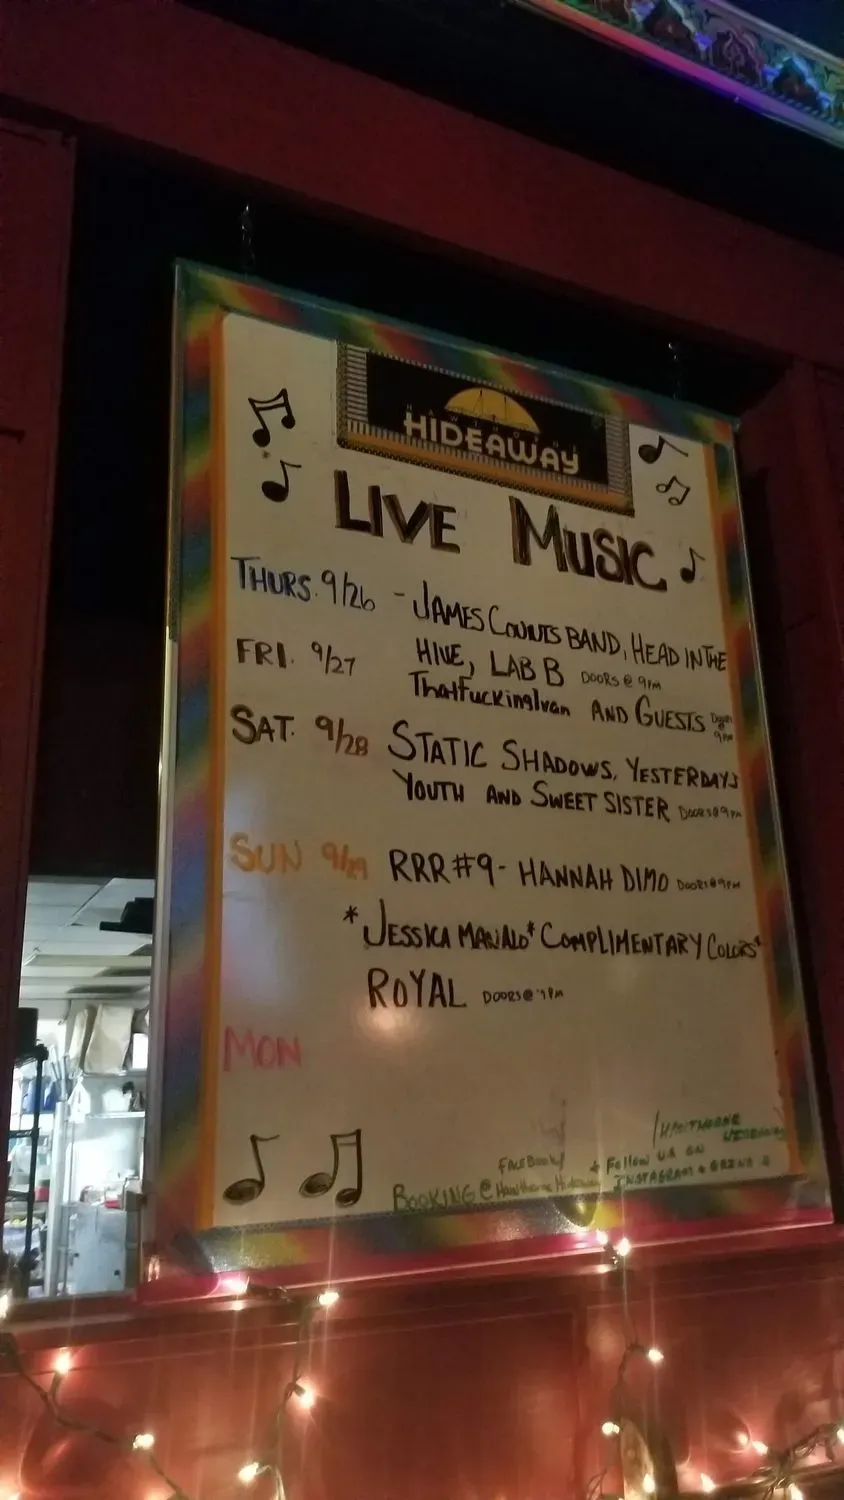 HAWTHORNE
HIDEAWAY
LIVE MUSIC
THURS. 9/26 - JAMES COUNTS BAND, HEAD IN THE
HIVE, LAB B DOORS @ 9PM
FRI. 9/27 ThatFuckingIvan AND GUESTS Doors @ 9PM
SAT. 9/28 STATIC SHADOWS, YESTERDAYS
YOUTH AND SWEET SISTER DOORS@9PM
SUN 9/29 RRR#9- HANNAH DIMO DOORS@9PM
*JESSICA MANALO* COMPLIMENTARY COLORS*
ROYAL DOORS@ 9PM
MON
/HAWTHORNE
HIDEAWAY
FACEBOOK/ Follow US ON
BOOKING @ Hawthorne Hideaway INSTAGRAM